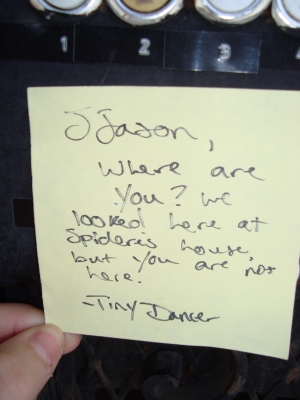 1 2 3 4
J Jason,
Where are
you? We
looked here at
Spider's house,
but you are not
here.
-Tiny Dancer